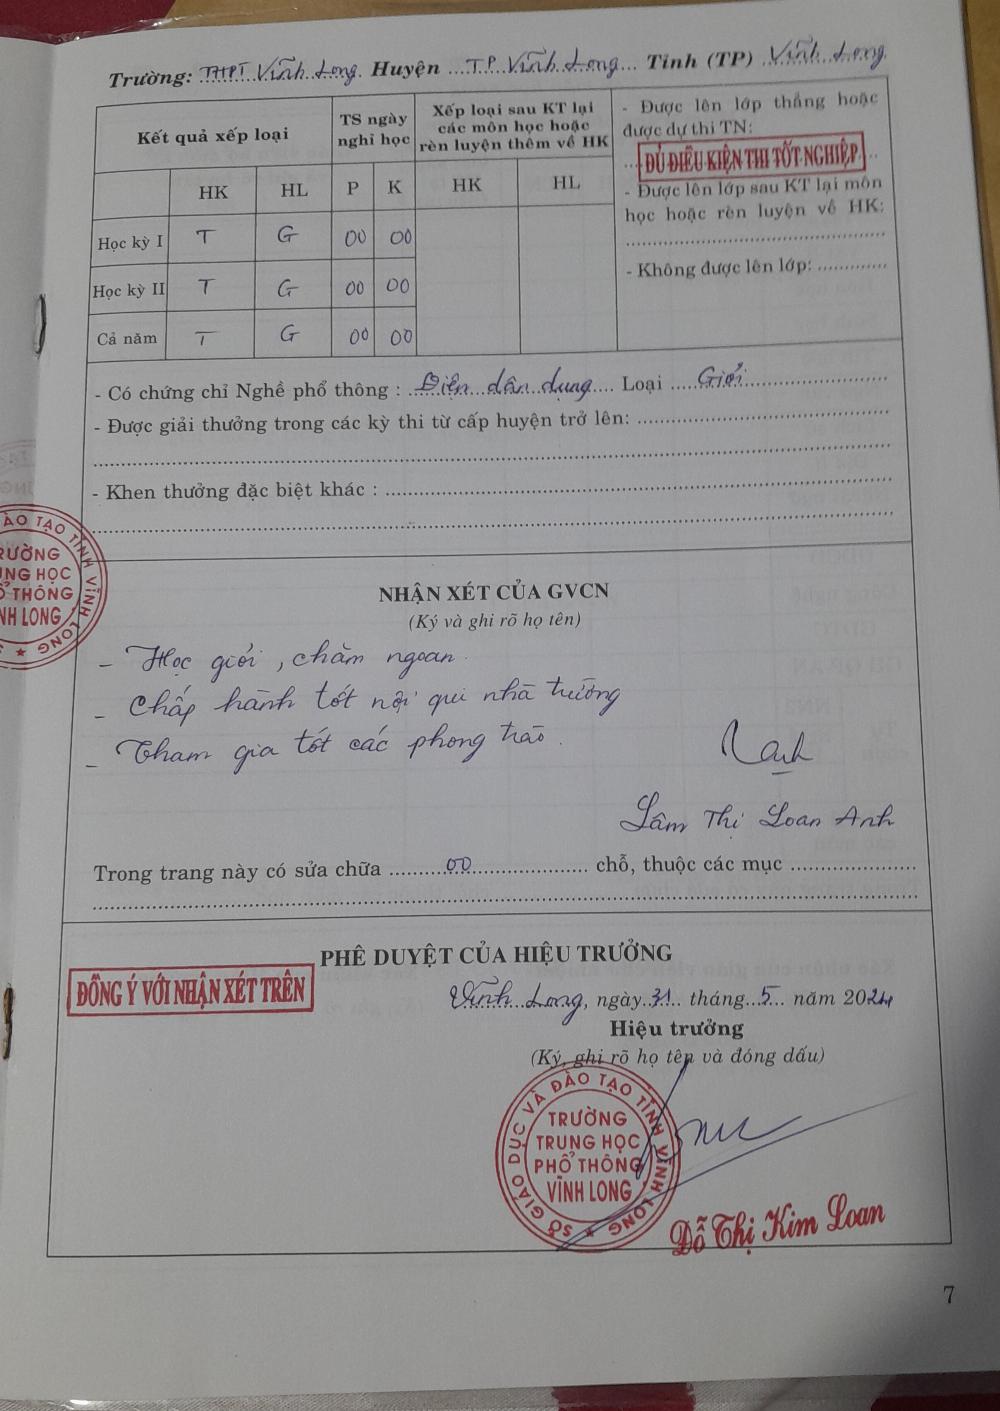 Trường: THPT Vĩnh Long. Huyện ...T.P Vĩnh Long... Tỉnh (TP) .Vĩnh Long.
Kết quả xếp loại
TS ngày
nghỉ học
Xếp loại sau KT lại
các môn học hoặc
rèn luyện thêm về HK
- Được lên lớp thẳng hoặc
được dự thi TN:
ĐỦ ĐIỀU KIỆN THI TỐT NGHIỆP
- Được lên lớp sau KT lại môn
học hoặc rèn luyện về HK:
- Không được lên lớp: .............
HK HL P K HK HL
Học kỳ I T G 00 00
Học kỳ II T G 00 00
Cả năm T G 00 00
- Có chứng chỉ Nghề phổ thông : Điện dân dụng.... Loại ....Giỏi
- Được giải thưởng trong các kỳ thi từ cấp huyện trở lên:
- Khen thưởng đặc biệt khác :
ĐÀO TẠO TỈNH VĨNH LONG
TRUNG HỌC
PHỔ THÔNG
NHẬN XÉT CỦA GVCN
(Ký và ghi rõ họ tên)
- Học giỏi, chăm ngoan.
- Chấp hành tốt nội qui nhà trường
- Tham gia tốt các phong trào.
Lâm Thị Loan Anh
Trong trang này có sửa chữa .......00............... chỗ, thuộc các mục ..................
PHÊ DUYỆT CỦA HIỆU TRƯỞNG
ĐỒNG Ý VỚI NHẬN XÉT TRÊN
Vĩnh Long, ngày 31 tháng 5 năm 2024
Hiệu trưởng
(Ký, ghi rõ họ tên và đóng dấu)
SỞ GIÁO DỤC VÀ ĐÀO TẠO TỈNH VĨNH LONG
TRƯỜNG
TRUNG HỌC
PHỔ THÔNG
VĨNH LONG
Đỗ Thị Kim Loan
7